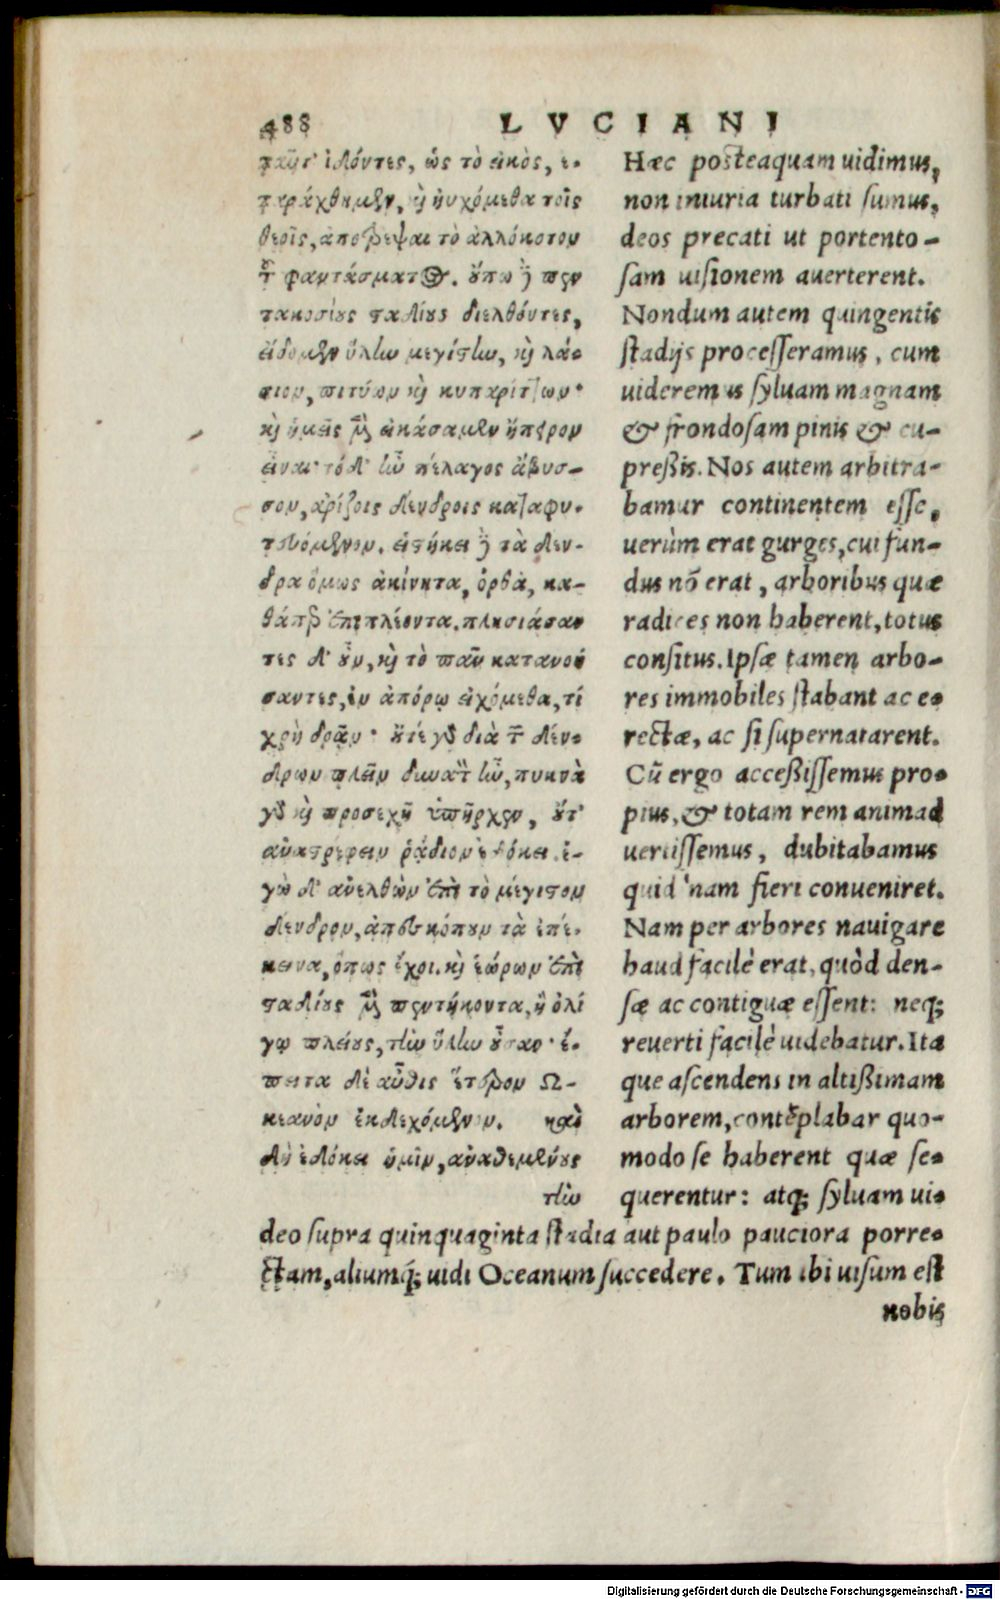 488 LVCIANI
ταῦτ' ἰδόντες, ὡς τὸ εἰκὸς, ἐ-
ταράχθημεν, ἢ ηὐχόμεθα τοῖς
θεοῖς, ἀποτρέψαι τὸ ἀλλόκοτον
τ φαντάσματος. οὔπω δὲ πεν
τακοσίους σταδίους διελθόντες,
εἴδομεν ὕλην μεγίστην, καὶ λά-
σιον, πιτύων καὶ κυπαρίττων·
καὶ ἡμεῖς μὲν εἰκάσαμεν ἤπειρον
εἶναι· τὸ δ' ἦν πέλαγος ἄβυσ-
σον, ἀρίζοις δένδροις καταφυ-
τευόμενον. εἱστήκει δὲ τὰ δέν-
δρα ὅμως ἀκίνητα, ὀρθὰ, κα-
θάπερ ἐπιπλέοντα. πλησιάσαν
τες δ' οὖν, καὶ τὸ πᾶν κατανοή
σαντες, ἐν ἀπόρῳ εἰχόμεθα, τί
χρὴ δρᾶν· οὔτε γὰρ διὰ τ δέν-
δρων πλεῖν δυνατὸν ἦν, πυκνὰ
γὰρ καὶ προσεχῆ ὑπῆρχεν, οὔτ'
ἀναστρέφειν ῥάδιον ἐδόκει. ἐ-
γὼ δ' ἀνελθὼν ἐπὶ τὸ μέγιστον
δένδρον, ἀπεσκόπουν τὰ ἐπέ-
κεινα, ὅπως ἔχοι. καὶ ἑώρων ἐπὶ
σταδίους μὲν πεντήκοντα, ἢ ὀλί
γῳ πλείους, τὴν ὕλην οὖσαν· ἔ-
πειτα δὲ αὖθις ἕτερον Ω-
κεανὸν ἐκδεχόμενον. καὶ
δὴ ἐδόκει ἡμῖν, ἀναθεμένους
τὴν
Hæc posteaquam uidimus,
non iniuria turbati sumus,
deos precati ut portento-
sam uisionem auerterent.
Nondum autem quingentis
stadijs processeramus, cum
uideremus syluam magnam
& frondosam pinis & cu-
preßis. Nos autem arbitra-
bamur continentem esse,
uerùm erat gurges, cui fun-
dus nō erat, arboribus quæ
radices non haberent, totus
consitus. Ipsæ tamen arbo-
res immobiles stabant ac e-
rectæ, ac si supernatarent.
Cū ergo acceßissemus pro-
pius, & totam rem animad
uertissemus, dubitabamus
quid'nam fieri conueniret.
Nam per arbores nauigare
haud facilè erat, quòd den-
sæ ac contiguæ essent: neq;
reuerti facilè uidebatur. Ita
que ascendens in altißimam
arborem, contēplabar quo-
modo se haberent quæ se-
querentur: atq; syluam ui-
deo supra quinquaginta stadia aut paulo pauciora porre-
ctam, aliumq; uidi Oceanum succedere. Tum ibi uisum est
nobis
Digitalisierung gefördert durch die Deutsche Forschungsgemeinschaft - DFG